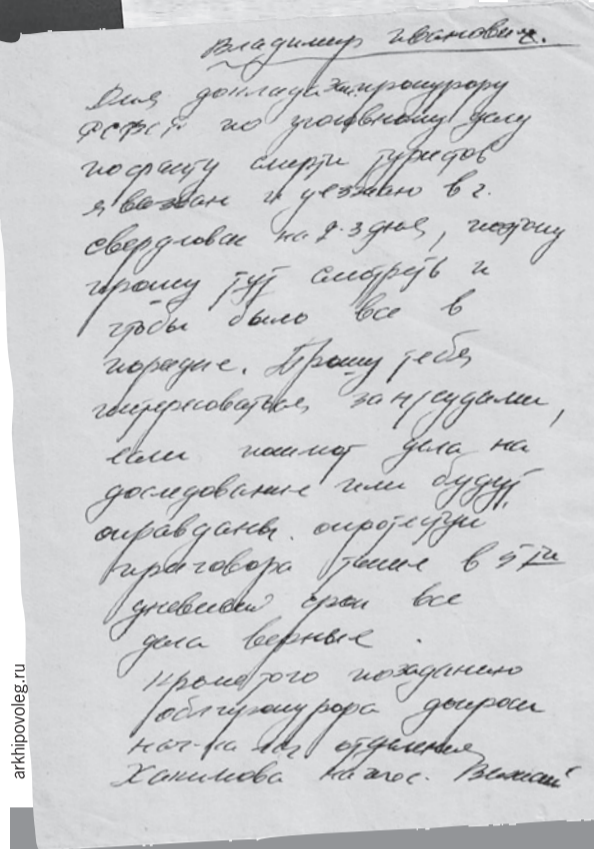 Владимир Иванович.
Для доклада зам. прокурору
РСФСР по уголовному делу
по факту смерти туристов
я вызван и уезжаю в г.
Свердловск на 2-3 дня, поэтому
прошу тут смотреть и
чтобы было все в
порядке. Прошу тебя
интересоваться за н/судами,
если пошлют дела на
доследование или будут
оправданы. опротестуй
приговора такие в 5ти
дневный срок все
дела верные.
Кроме того по заданию
облпрокурора допроси
нач-ка отделения
Хакимова на пос. Вижай
arkhipovoleg.ru